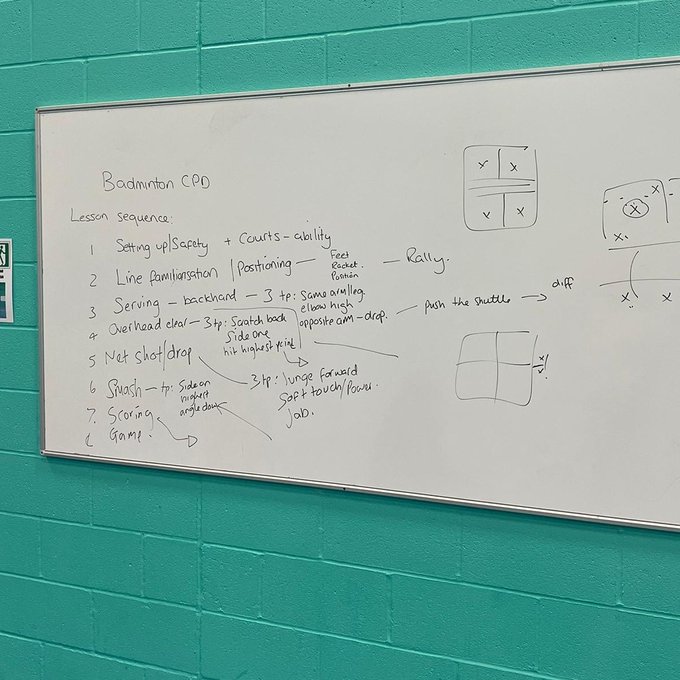 Badminton CPD
Lesson sequence:
1 Setting up/Safety + Courts - ability
2 Line familiarisation / Positioning — Feet Racket Position — Rally.
3 Serving - backhand - 3 tp: Same arm/leg
elbow high
opposite arm - drop. — push the shuttle → diff
4 Overhead clear - 3 tp: Scratch back
Side one
hit highest point
5 Net shot/drop
3 tp: lunge forward
Soft touch/Power.
Jab.
6 Smash - tp: Side on
highest
angle down
7. Scoring
Game.
x x
x x
x
x
x
x x
x
x